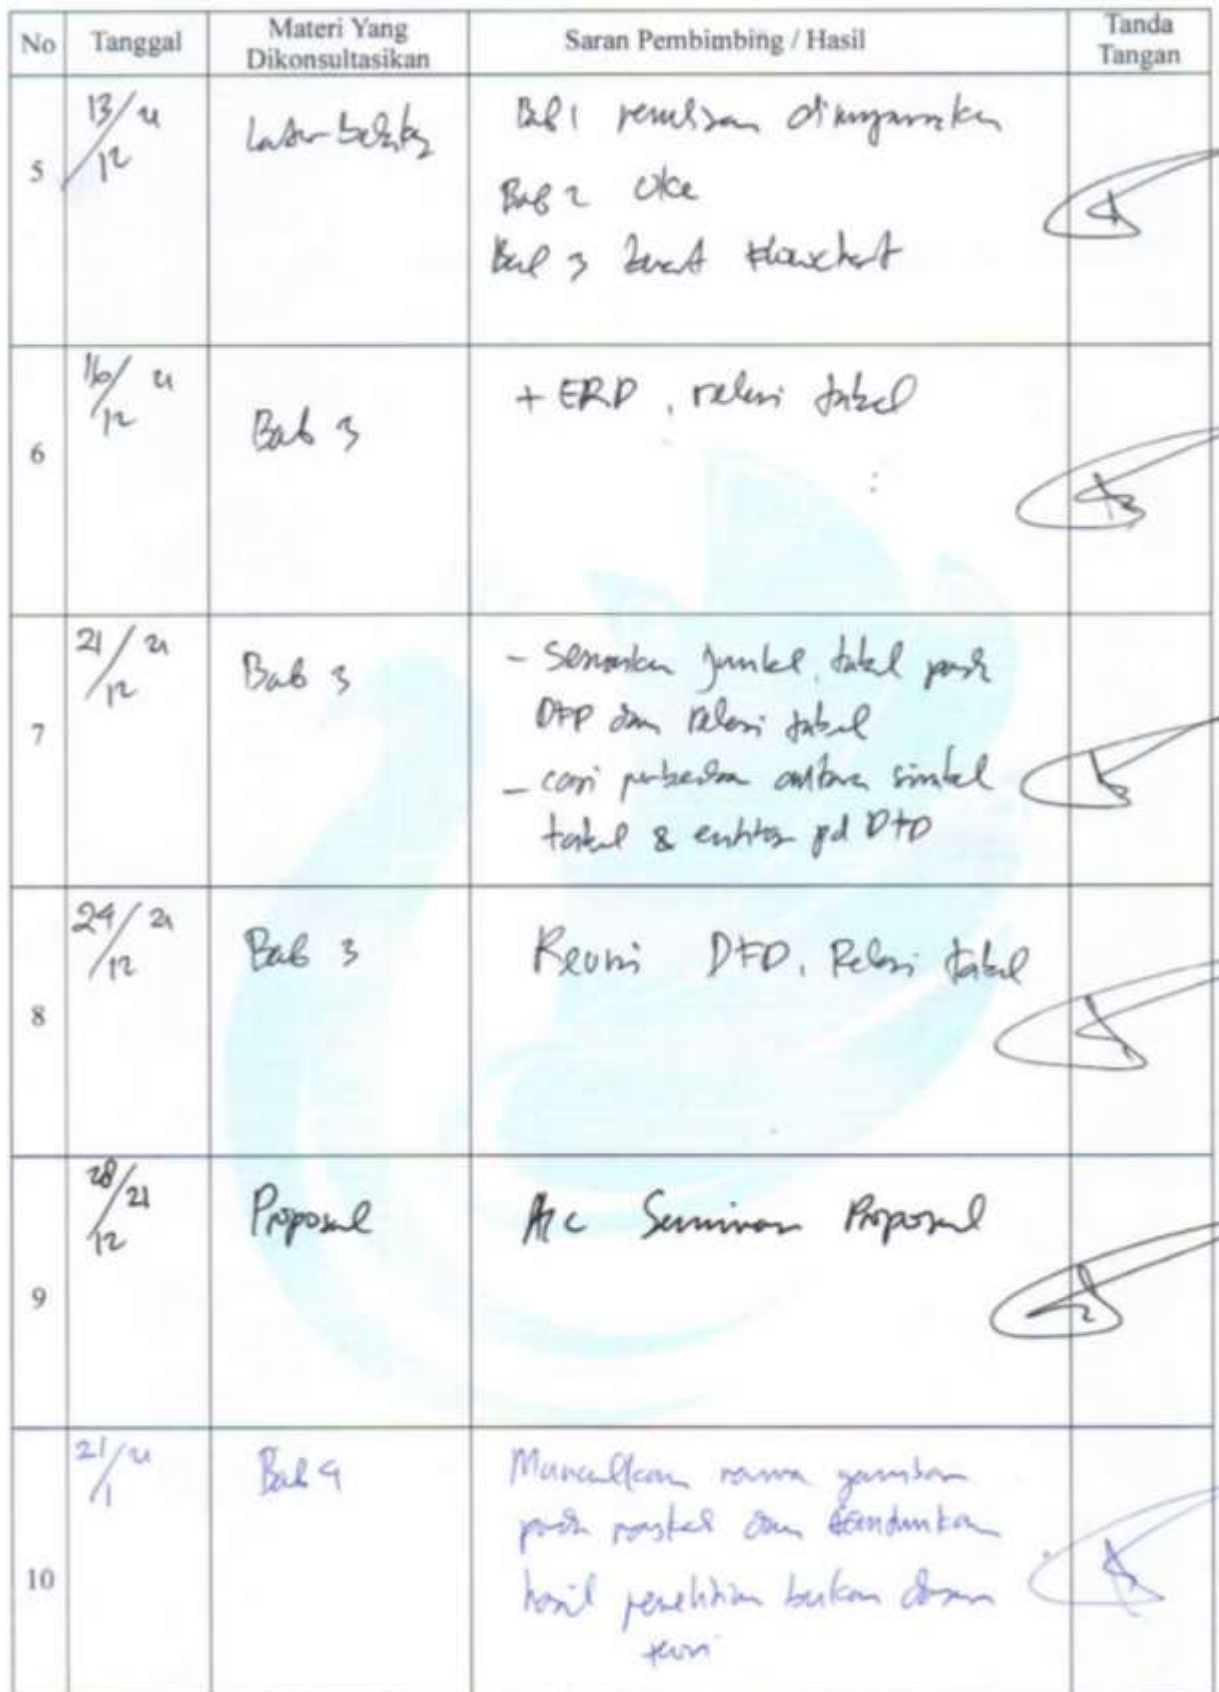 No Tanggal Materi Yang Dikonsultasikan Saran Pembimbing / Hasil Tanda Tangan
5 13/12 21 Latar belakang Bab 1 penulisan
Bab 2 oke
Bab 3 buat flowchart
6 16/12 21 Bab 3 + ERD, relasi tabel
7 21/12 21 Bab 3 - Sesuaikan jumlah tabel pada
DFD dan relasi tabel
- cari perbedaan antara simbol
tabel & entitas pd DFD
8 24/12 21 Bab 3 Revisi DFD, Relasi tabel
9 28/12 21 Proposal Acc Seminar Proposal
10 21/1 Bab 4 Munculkan nama gambar
pada naskah dan
hasil penelitian bukan dasar
teori